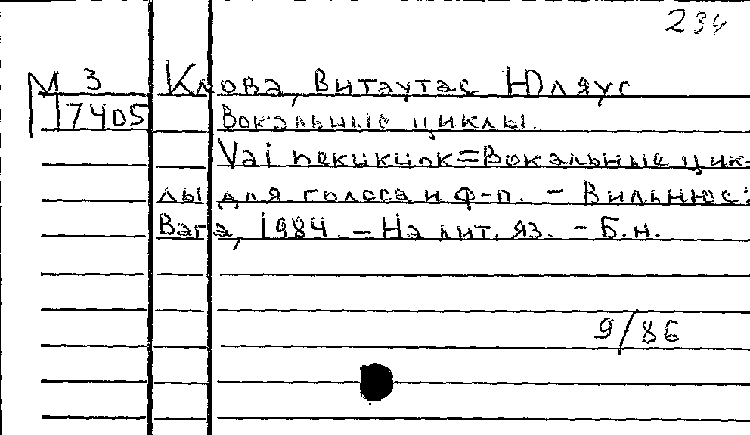 234
М 3 Клова, Витаутас Юляус
17405 Вокальные циклы.
Vai nekukuok=Вокальные цик-
лы для голоса и ф-п. - Вильнюс:
Вага, 1984. - На лит. яз. - Б.н.
9/86